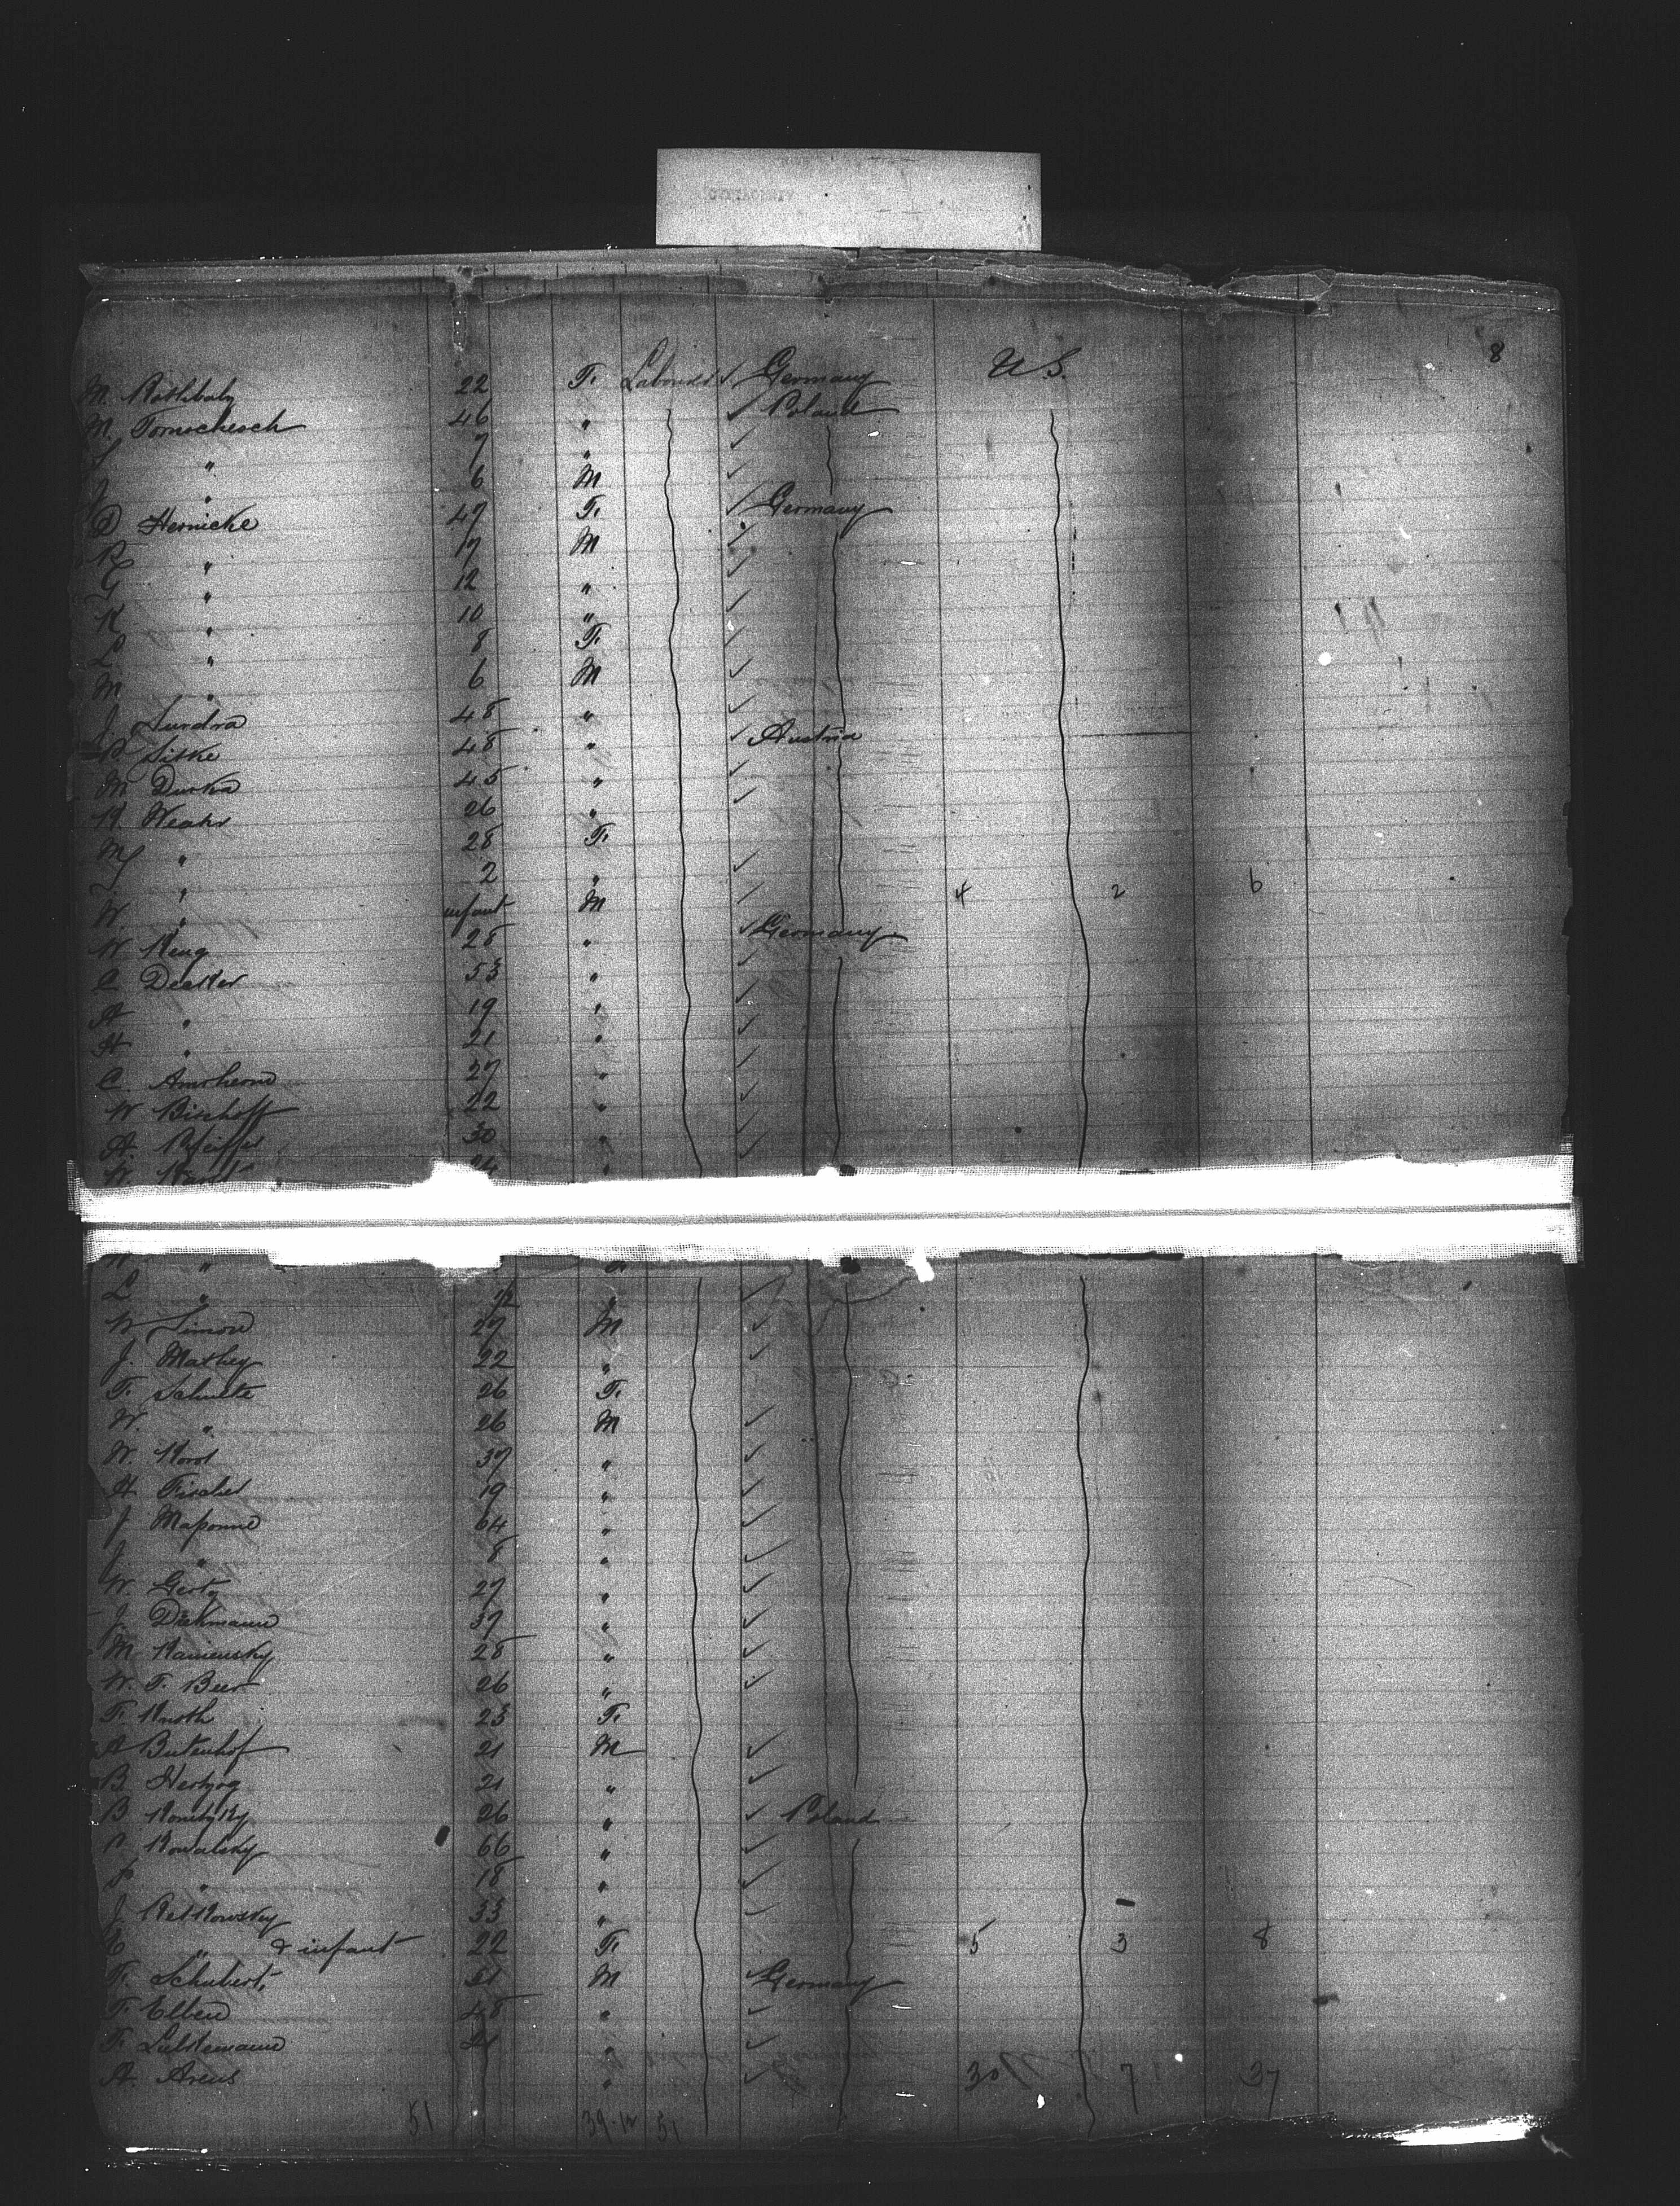 8
M. Rothbaly 22 F. Labourer ✓ Germany U.S.
M. Tomschesch 46 " ✓ Poland
J " 7 " ✓
" 6 M ✓
D Hernicke 47 F. ✓ Germany
R " 17 M ✓
G " 12 " ✓
K " 10 " ✓
L " 8 F. ✓
M " 6 M ✓
J Sundra 48 " ✓
P Sitke 48 " ✓ Austria
M Durka 45 " ✓
K Weaks 26 " ✓
My " 28 F.
" 2 " ✓
W. " infant M ✓ 4 2 6
W Keug 28 " ✓ Germany
C Decker 53 " ✓
A " 19 " ✓
H " 21 " ✓
C. Amrhein 27 " ✓
W Bischoff 22 " ✓
A. Pfeiffer 30 " ✓
24 "
" "
L " 12 " ✓
W Simon 27 M ✓
J. Mathey 22 " ✓
F. Schulte 26 F.
W. " 26 M ✓
W. Horst 37 " ✓
H Fischer 19 " ✓
J Maponne 64 " ✓
J " 8 " ✓
W. Gertz 27 " ✓
J. Diekmann 37 " ✓
M Kamensky 28 " ✓
W. F. Beer 26 " ✓
F. Knoth 23 F.
A Butenhof 21 M ✓
B. Herzog 21 " ✓
B Konitzky 26 " ✓ Poland
P Kowalsky 66 " ✓
P " 18 " ✓
J Retkowsky 33 " ✓
" & infant 22 F. 5 3 8
F. Schubert 21 M ✓ Germany
F. Elben 48 " ✓
F Lühtemann 21 " ✓
A. Areus " ✓ 30 7 37
51 39-12 51